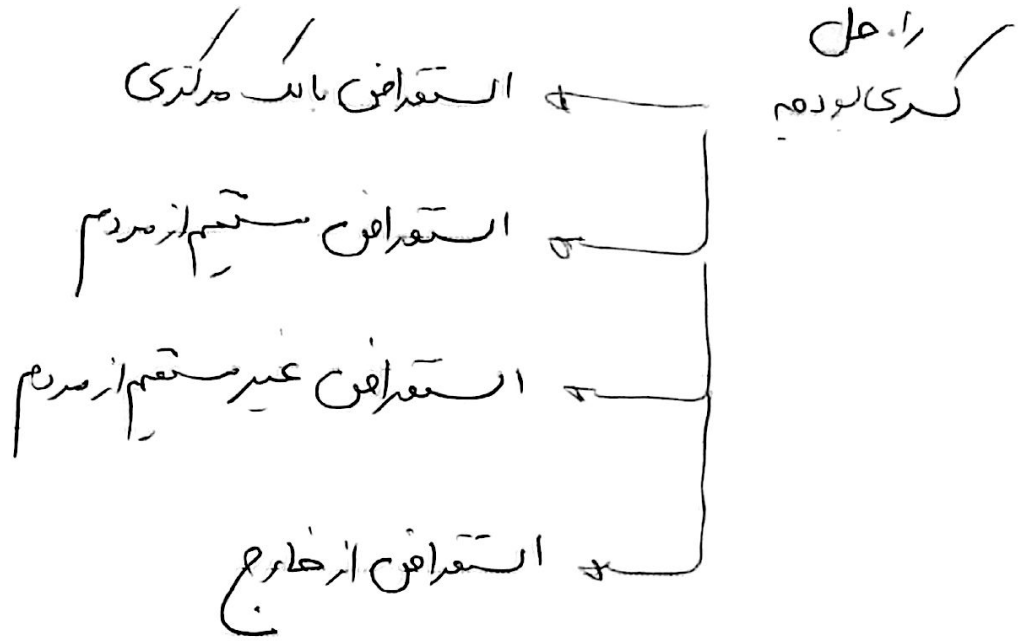 راه حل
کسری بودجه
استقراض بانک مرکزی
استقراض مستقیم از مردم
استقراض غیر مستقیم از مردم
استقراض از خارج